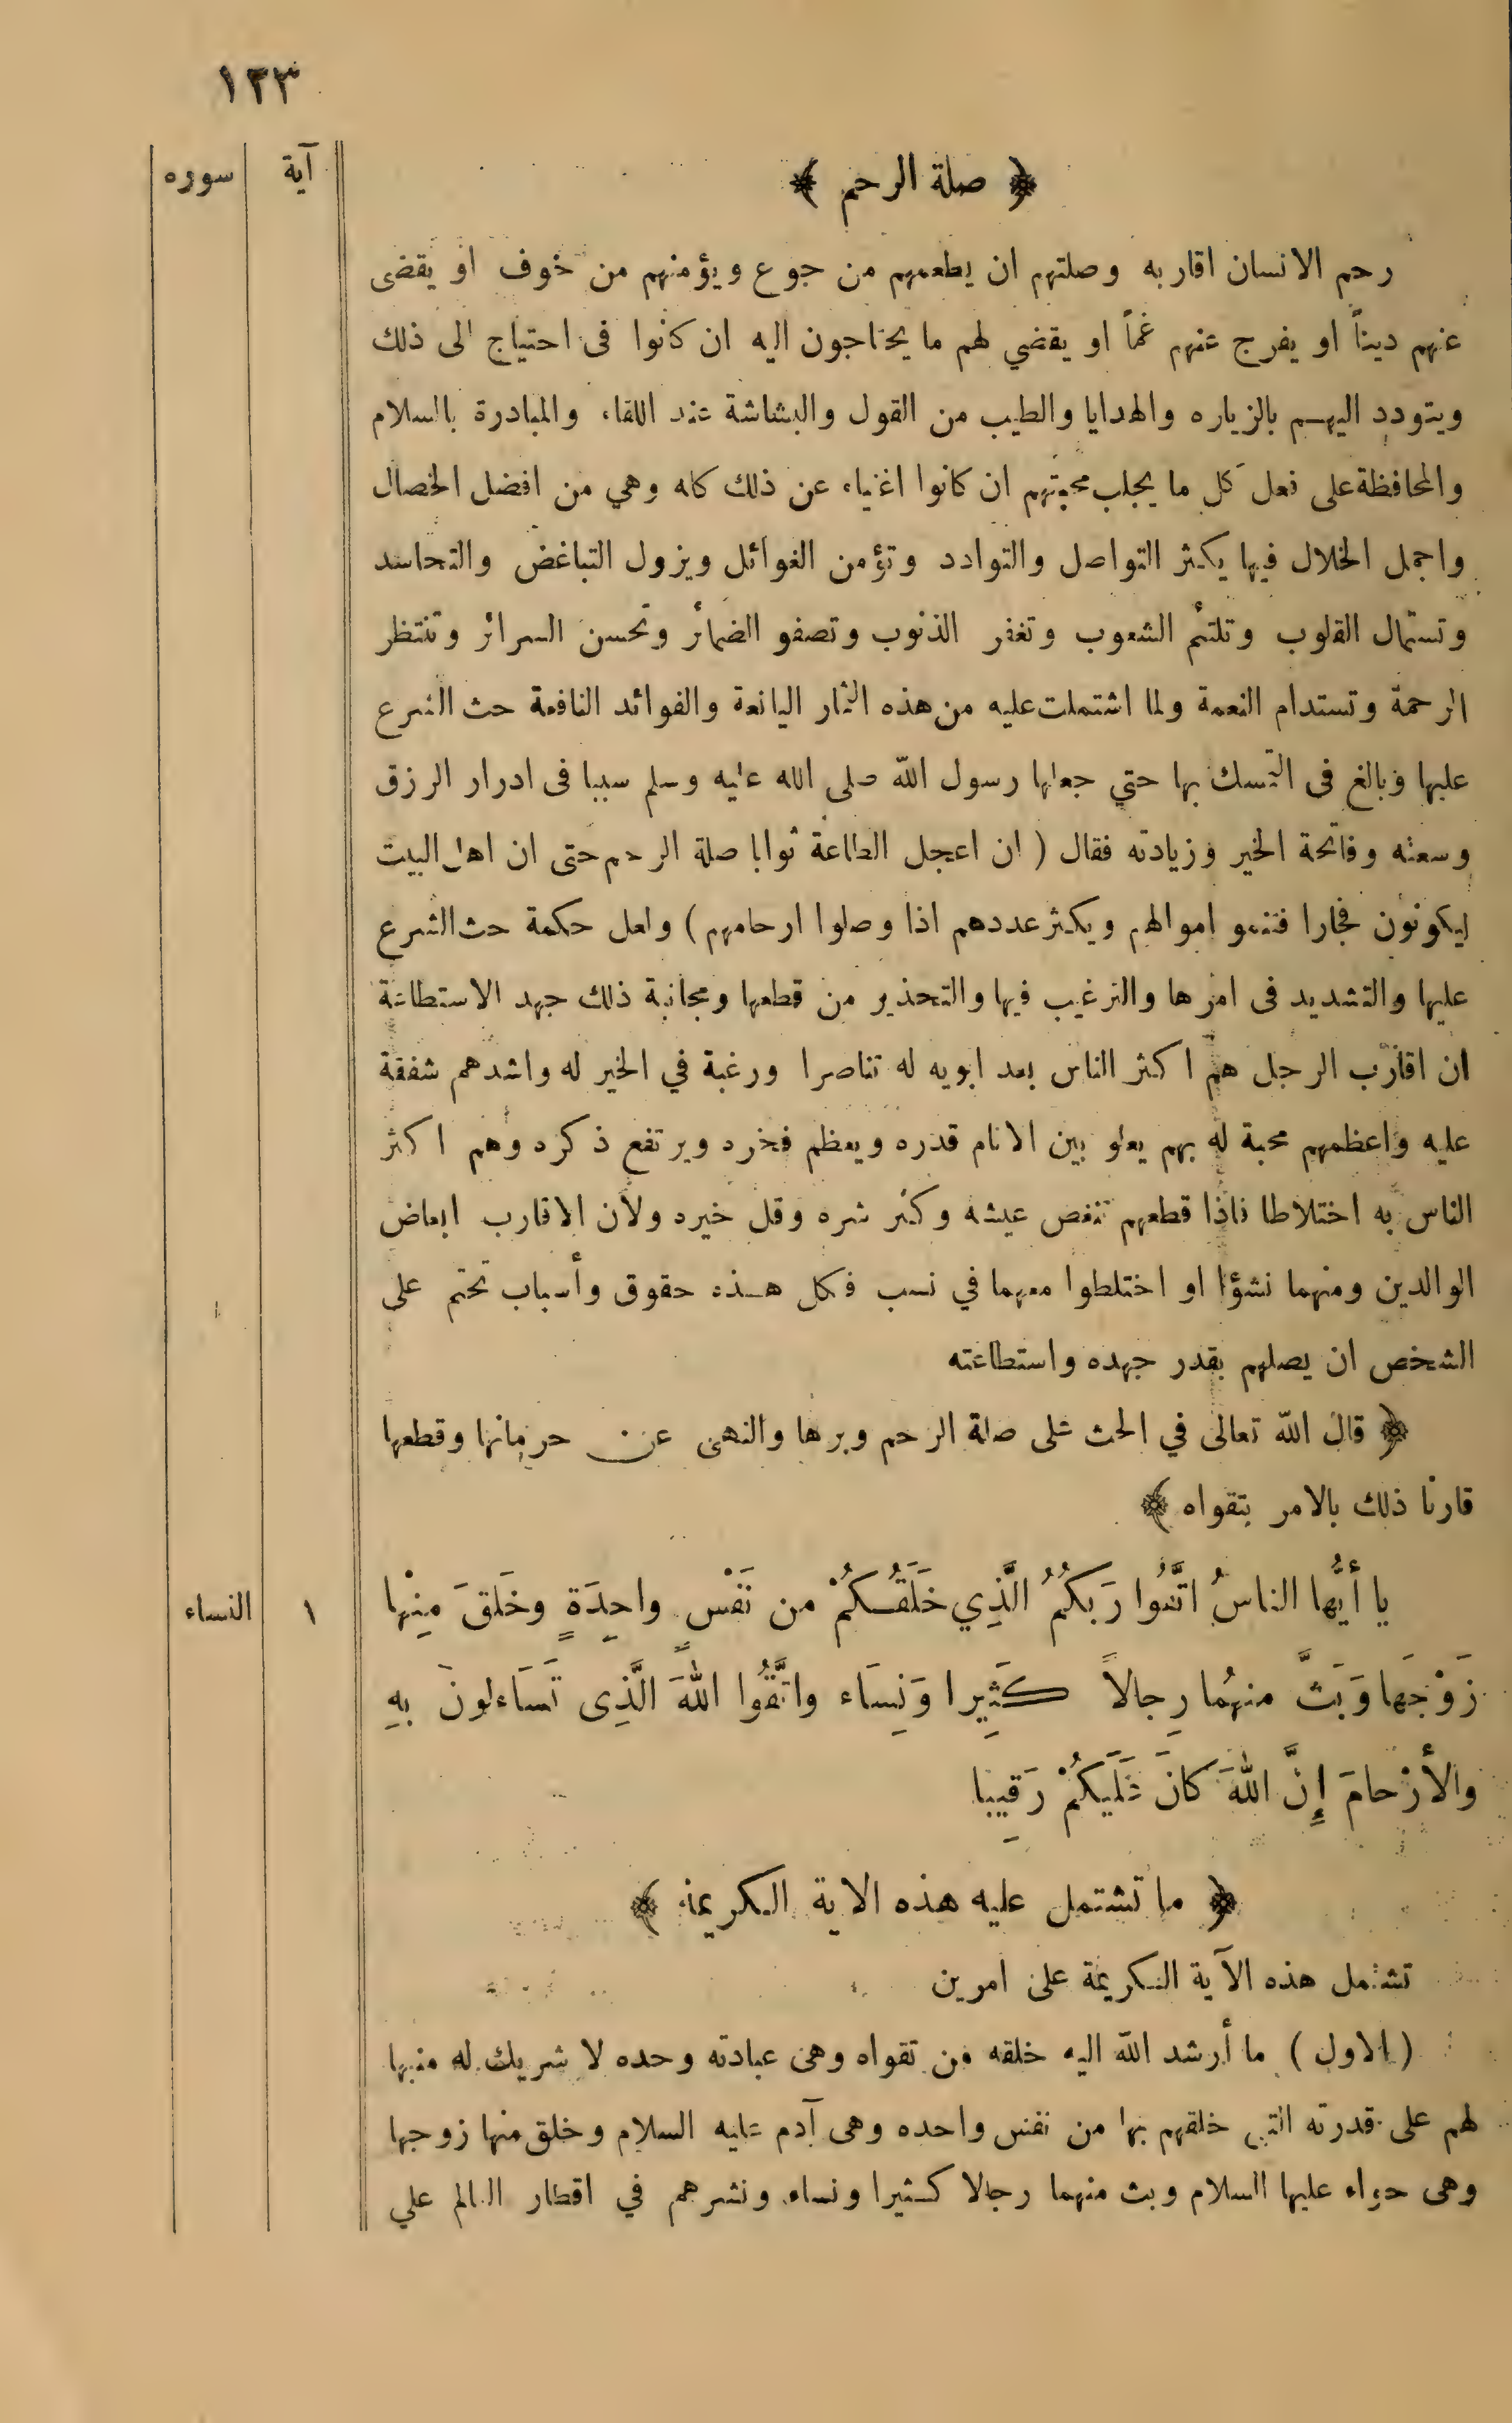 ١٣٣
آية سوره
﴿ صلة الرحم ﴾
رحم الانسان اقاربه وصلتهم ان يطعمهم من جوع ويؤمنهم من خوف او يقضى
عنهم ديناً او يفرج عنهم غماً او يقضي لهم ما يحتاجون اليه ان كانوا فى احتياج الى ذلك
ويتودد اليهم بالزياره والهدايا والطيب من القول والبشاشة عند اللقاء والمبادرة بالسلام
والمحافظة على فعل كل ما يجلب محبتهم ان كانوا اغنياء عن ذلك كله وهي من افضل الخصال
واجمل الخلال فبها يكثر التواصل والتوادد وتؤمن الغوائل ويزول التباغض والتحاسد
وتستمال القلوب وتلتئم الشعوب وتغفر الذنوب وتصفو الضمائر وتحسن السرائر وتنتظر
الرحمة وتستدام النعمة ولما اشتملت عليه من هذه الثمار اليانعة والفوائد النافعة حث الشرع
عليها وبالغ فى التمسك بها حتي جعلها رسول الله صلى الله عليه وسلم سببا فى ادرار الرزق
وسعته وفاتحة الخير وزيادته فقال ( ان اعجل الطاعة ثوابا صلة الرحم حتى ان اهل البيت
ليكونون فجارا فتنمو اموالهم ويكثر عددهم اذا وصلوا ارحامهم ) ولعل حكمة حث الشرع
عليها والتشديد فى امرها والترغيب فيها والتحذير من قطعها ومجانبة ذلك جهد الاستطاعة
ان اقارب الرجل هم اكثر الناس بعد ابويه له تناصرا ورغبة في الخير له واشدهم شفقة
عليه واعظمهم محبة له بهم يعلو بين الانام قدره ويعظم فخره ويرتفع ذكره وهم اكثر
الناس به اختلاطا فاذا قطعهم تنغص عيشه وكثر شره وقل خيره ولأن الاقارب ابعاض
الوالدين ومنهما نشؤا او اختلطوا معهما في نسب فكل هذه حقوق وأسباب تحتم على
الشخص ان يصلهم بقدر جهده واستطاعته
﴿ قال الله تعالى في الحث على صلة الرحم وبرها والنهى عن حرمانها وقطعها
قارنا ذلك بالامر بتقواه ﴾
يا أَيُّها الناسُ اتَّقُوا رَبَكُمُ الَّذِي خَلَقَُكُمْ من نَفْسٍ واحِدَةٍ وخَلَقَ مِنْها ١ النساء
زَوْجَها وَبَثَّ منهُما رِجالاً كَثِيرا وَنِسَاء واتَّقُوا اللهَ الَّذِى تَسَاءلونَ بهِ
والأرْحامَ إِنَّ اللهَ كانَ عَلَيكُمْ رَقِيبا
﴿ ما تشتمل عليه هذه الاية الكريمة ﴾
تشتمل هذه الآية الكريمة على امرين
( الاول ) ما أرشد الله اليه خلقه من تقواه وهى عبادته وحده لا شريك له منبها
لهم على قدرته التى خلقهم بها من نفس واحده وهى آدم عليه السلام وخلق منها زوجها
وهى حواء عليها السلام وبث منهما رجالا كثيرا ونساء ونشرهم في اقطار العالم علي